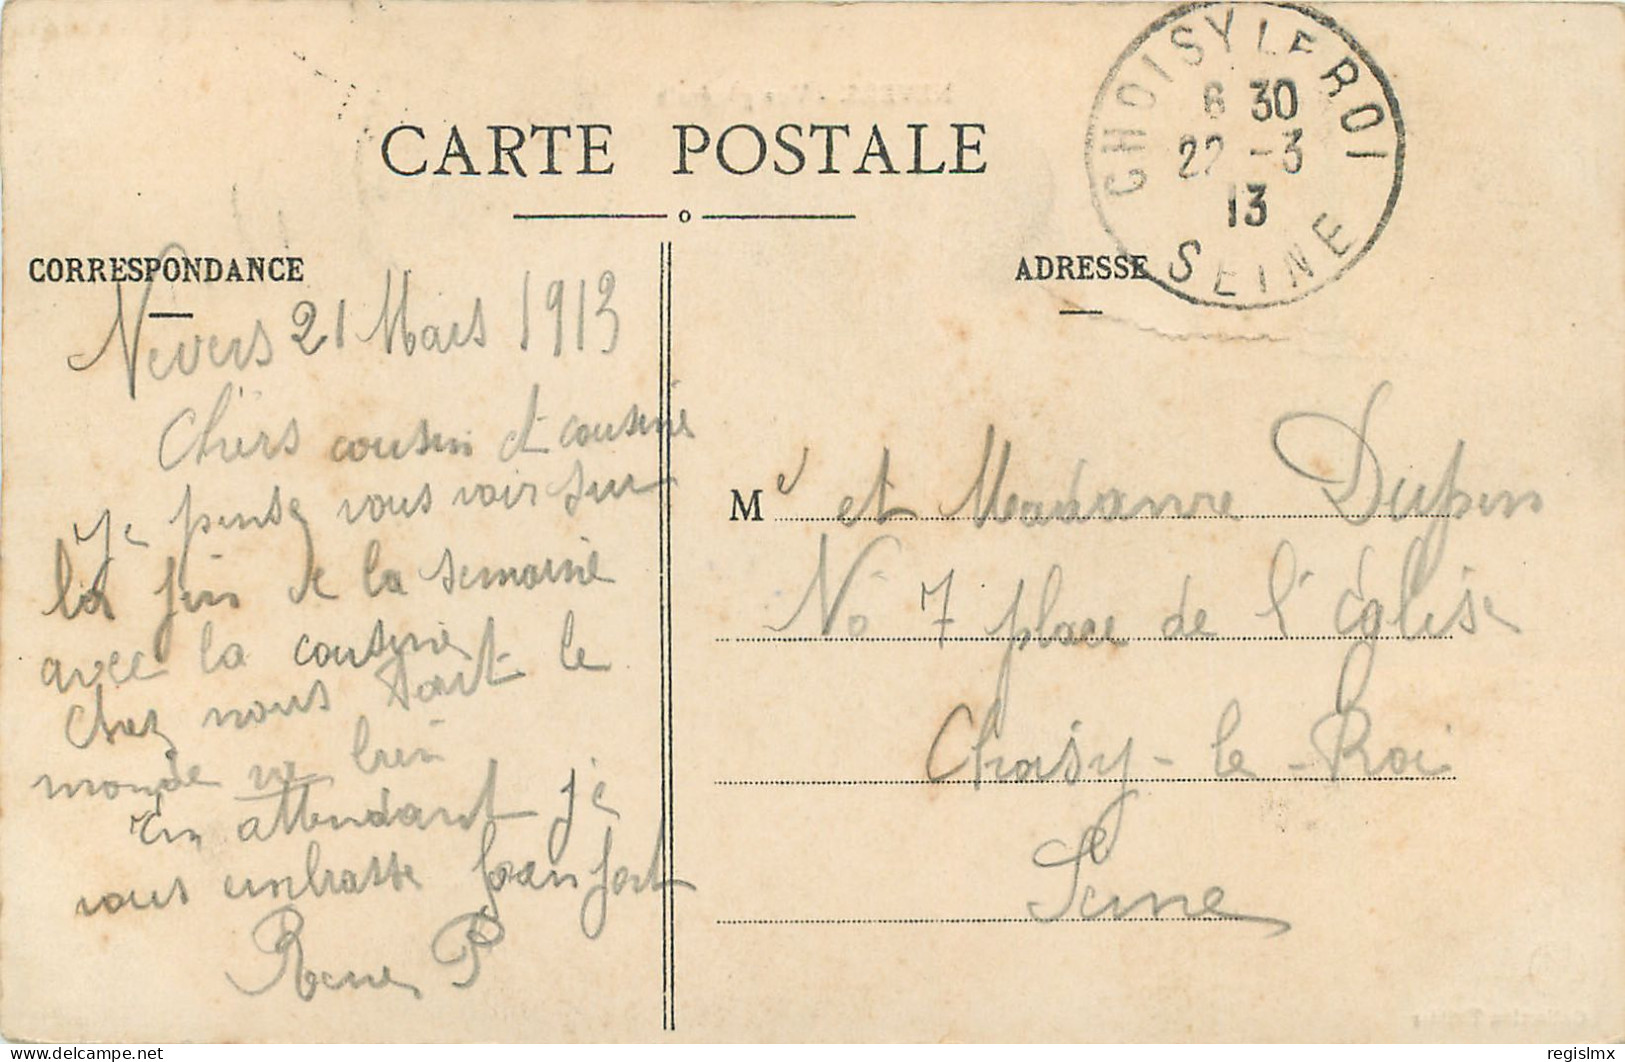 CARTE POSTALE
CORRESPONDANCE
ADRESSE
CHOISY LE ROI
6 30
22 -3
13
SEINE
Nevers 21 Mars 1913
Chers cousin et cousine
Je pense vous voir sur
la fin de la semaine
avec la cousine
Chez nous tout le
monde va bien
En attendant je
vous embrasse bien fort
Rene P
M r et Madame Dupin
No 7 place de l'église
Choisy-le-Roi
Seine
delcampe.net
regislmx